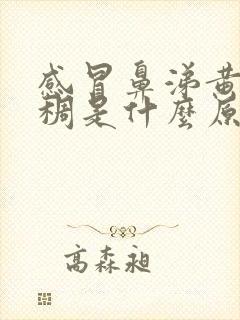 感冒鼻涕黄
稠是什麼原
高森昶